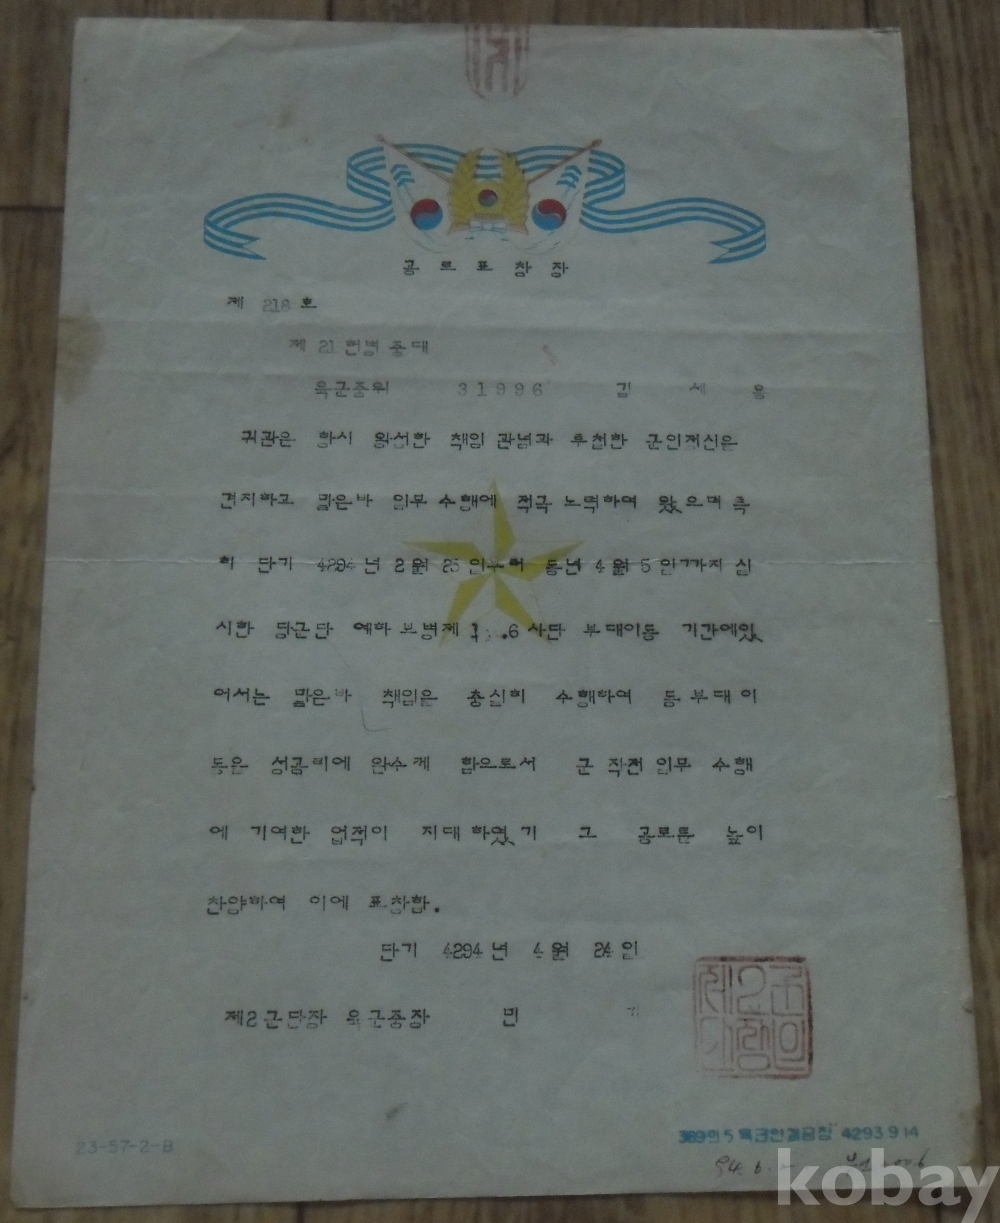 공로표창장
제 218 호
제 21 헌병 중대
육군중위 31996 김 세 웅
귀관은 항시 왕성한 책임 관념과 투철한 군인정신을
견지하고 맡은바 임무 수행에 적극 노력하여 왔으며 특
히 단기 4294년 2월 23일부터 동년 4월 5일까지 실
시한 당군단 예하 보병제 사단 부대이동 기간에있
어서는 맡은바 책임을 충실히 수행하여 동 부대 이
동을 성공리에 완수케 함으로서 군 작전 임무 수행
에 기여한 업적이 지대 하였기 그 공로를 높이
찬양하여 이에 표창함.
단기 4294 년 4월 24일
제2군단장 육군중장 민 기
제2군단장인
23-57-2-B
389의5 육군인쇄공창 4293.9.14
94. 6.
kobay